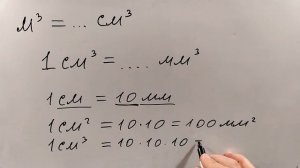 м³ = ... см³
1 см³ = .... мм³
1 см = 10 мм
1 см² = 10·10 = 100 мм²
1 см³ = 10·10·10